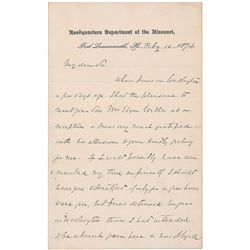 Headquarters Department of the Missouri,
Fort Leavenworth, Ks. Feby 10, 1874.
My dear Sir
When I was in Washington
a few days ago I had the pleasure to
meet your Son Mr Edgar Welles at an
reception & I was very much gratified
with his allusion to your kindly feeling
for me. If I could possibly have com-
manded my time myself I should
have gone to Hartford if only for a few hours
were from, but I was detained longer
in Washington than I had intended
when absent from here & was obliged